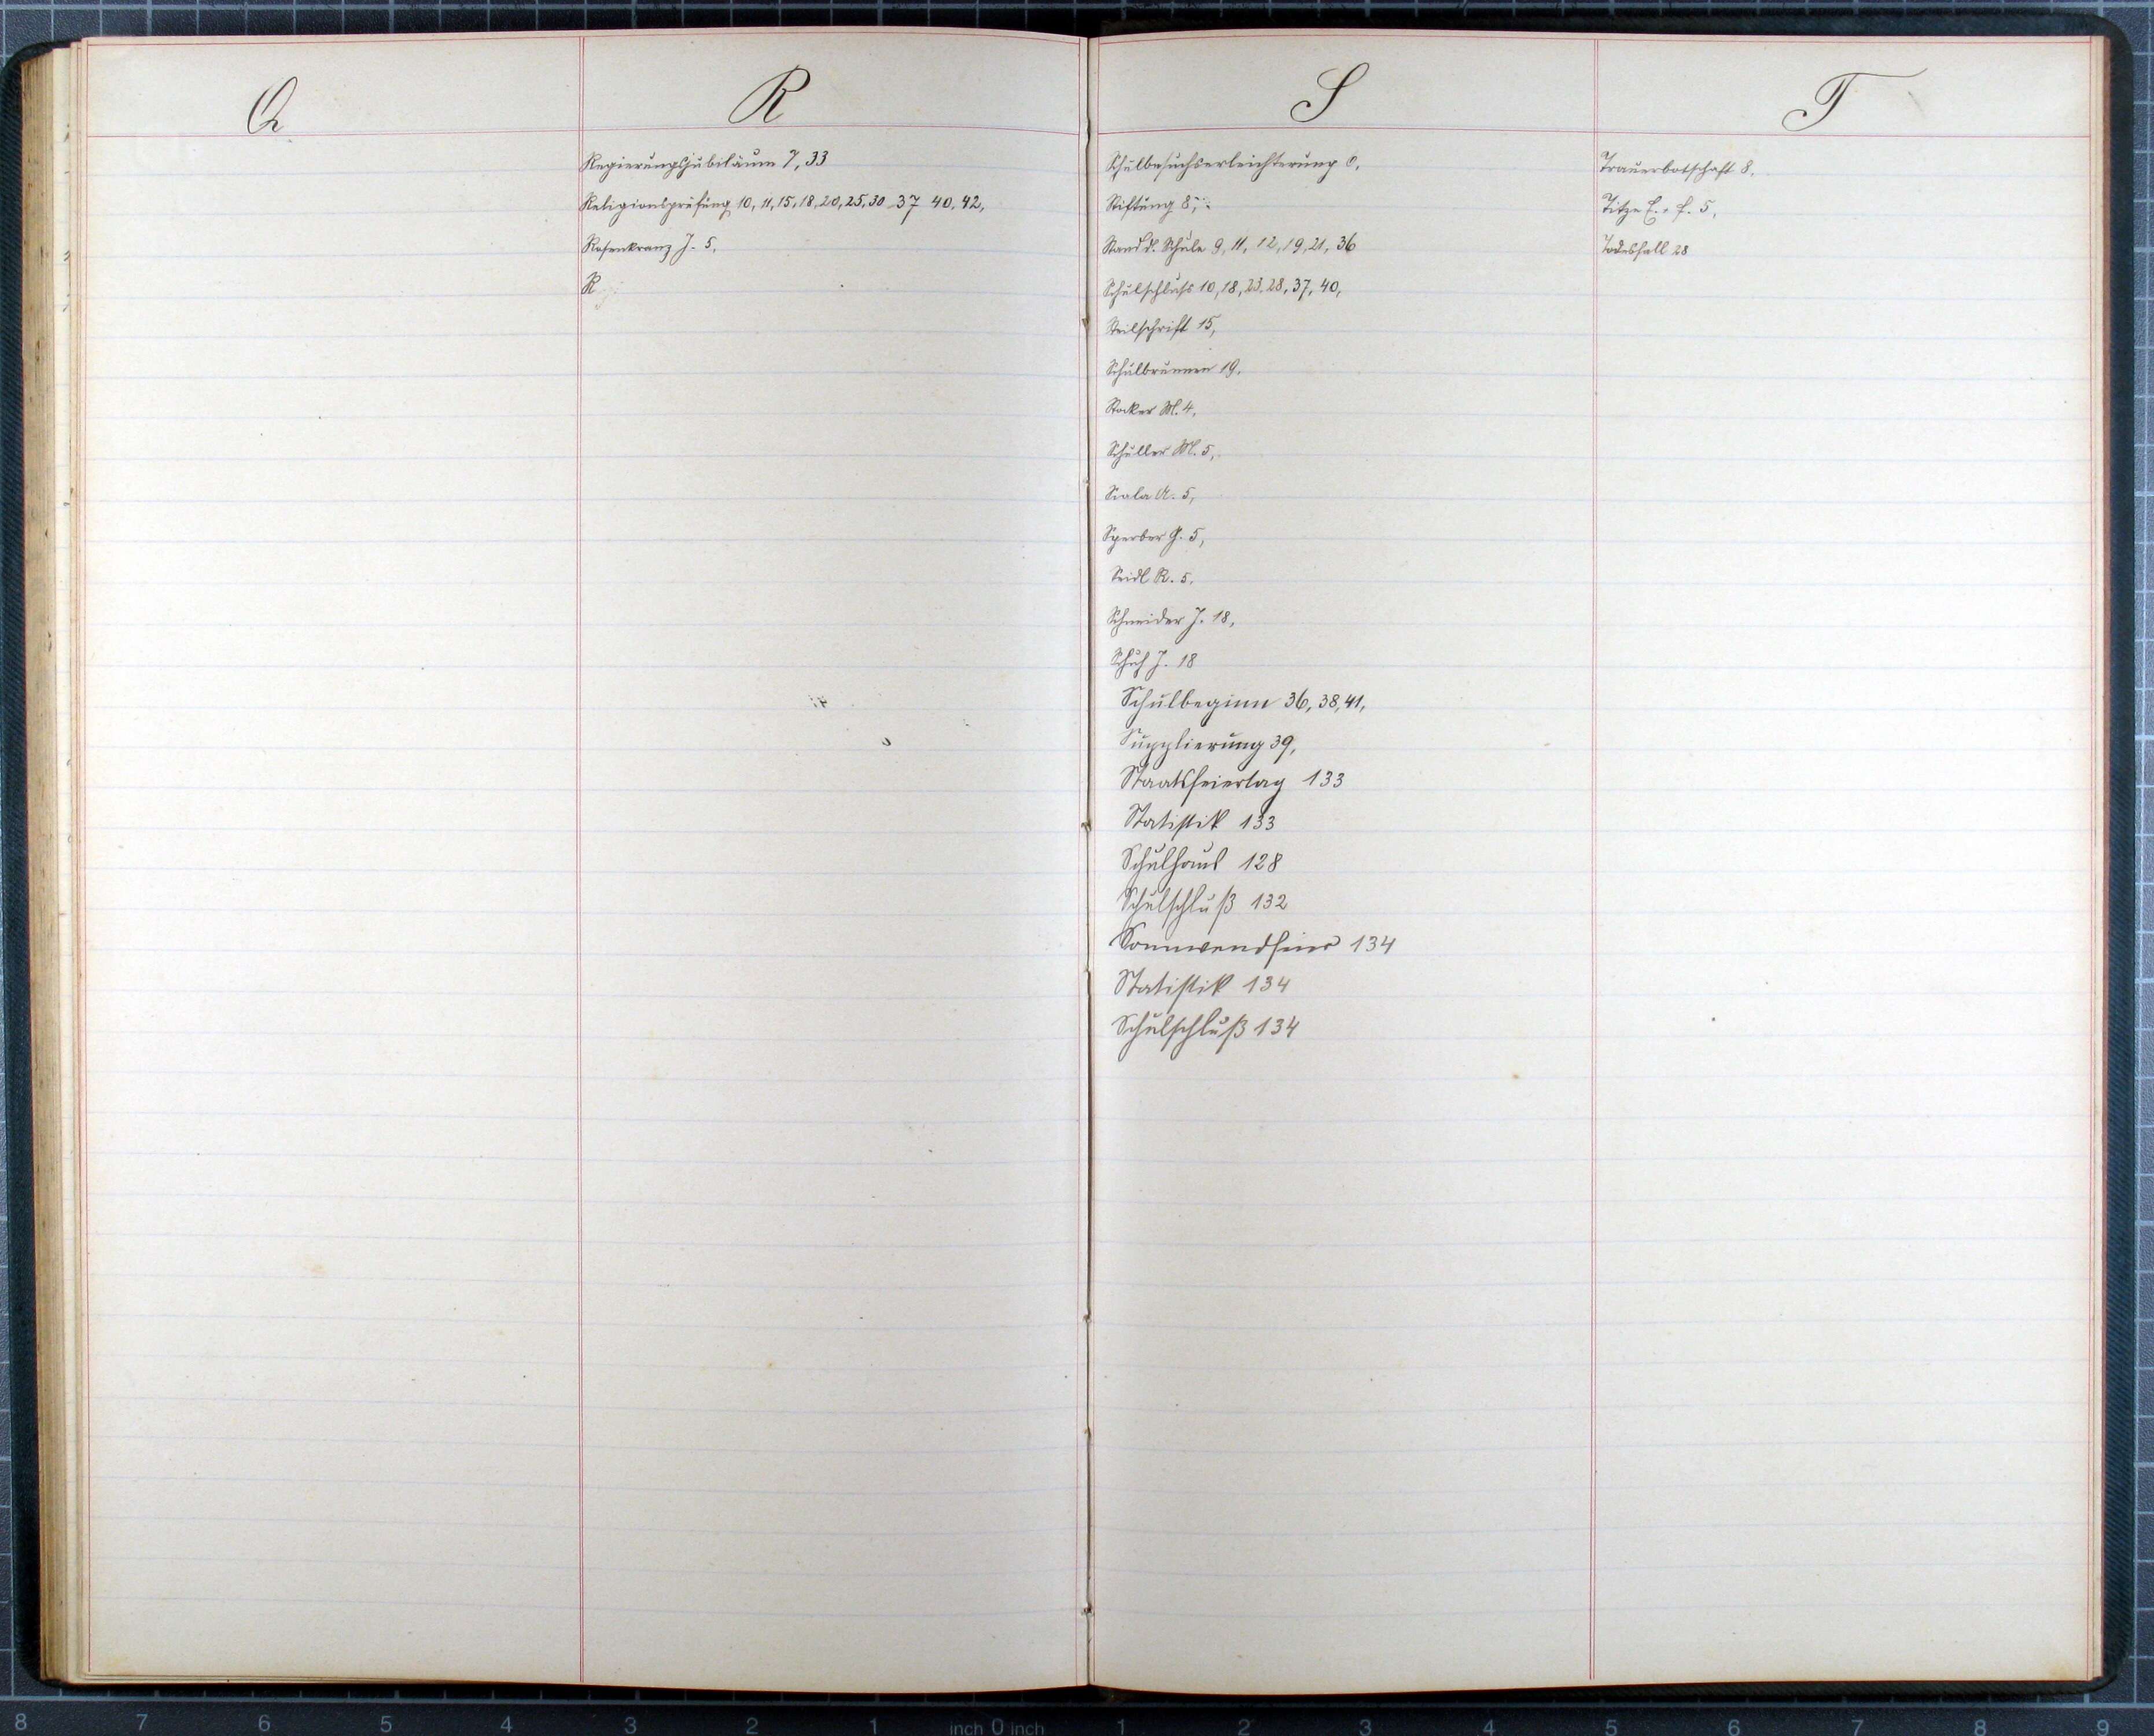 Q
R
Regierungsjubiläum 7, 33
Religionsprüfung 10, 11, 15, 18, 20, 25, 30 37 40, 42,
Rosenkranz J. 5,
R
S
Schulbesuchserleichterung 6,
Stiftung 8,
Stand d. Schule 9, 11, 12, 19, 21, 36
Schulschluss 10, 18, 23, 28, 37, 40,
Steilschrift 15,
Schulbrunnen 19,
Stocker M. 4,
Schuller M. 5,
Scala A. 5,
Sperber G. 5,
Seidl R. 5,
Schneider J. 18,
Schuh J. 18
Schulbeginn 36, 38, 41,
Supplierung 39,
Staatsfeiertag 133
Statistik 133
Schulhaus 128
Schulschluß 132
Sonnwendfeier 134
Statistik 134
Schulschluß 134
T
Trauerbotschaft 8,
Titze E. + f. 5,
Todesfall 28
8 7 6 5 4 3 2 1 inch 0 inch 1 2 3 4 5 6 7 8 9